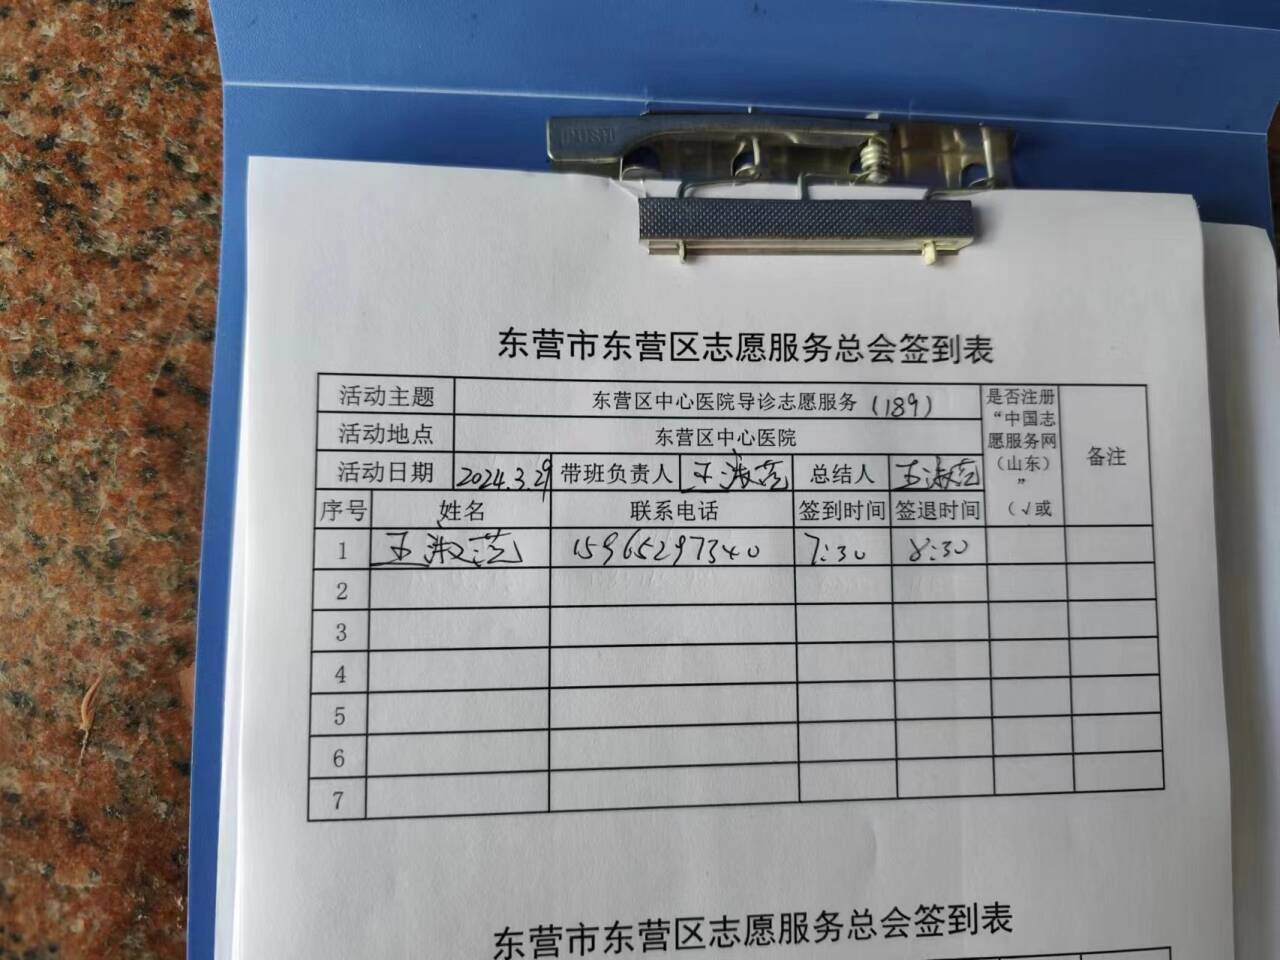 PUSH
东营市东营区志愿服务总会签到表
活动主题 东营区中心医院导诊志愿服务(189) 是否注册“中国志愿服务网（山东）”（√或 备注
活动地点 东营区中心医院
活动日期 2024.3.29 带班负责人 王淑范 总结人 王淑范
序号 姓名 联系电话 签到时间 签退时间
1 王淑范 15965297340 7:30 8:30
2
3
4
5
6
7
东营市东营区志愿服务总会签到表